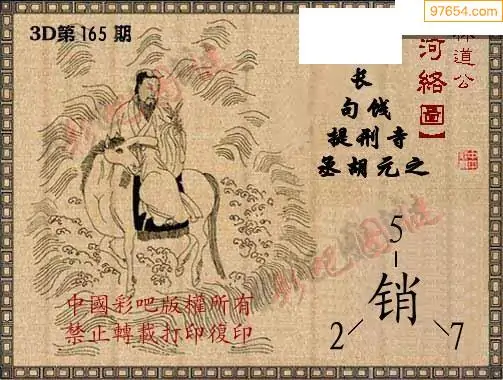 97654.com
3D第165期
林道公
河络圖】
长
句伐
提刑寺
丞胡元之
5
销
2
7
中國彩吧版權所有
禁止轉載打印復印